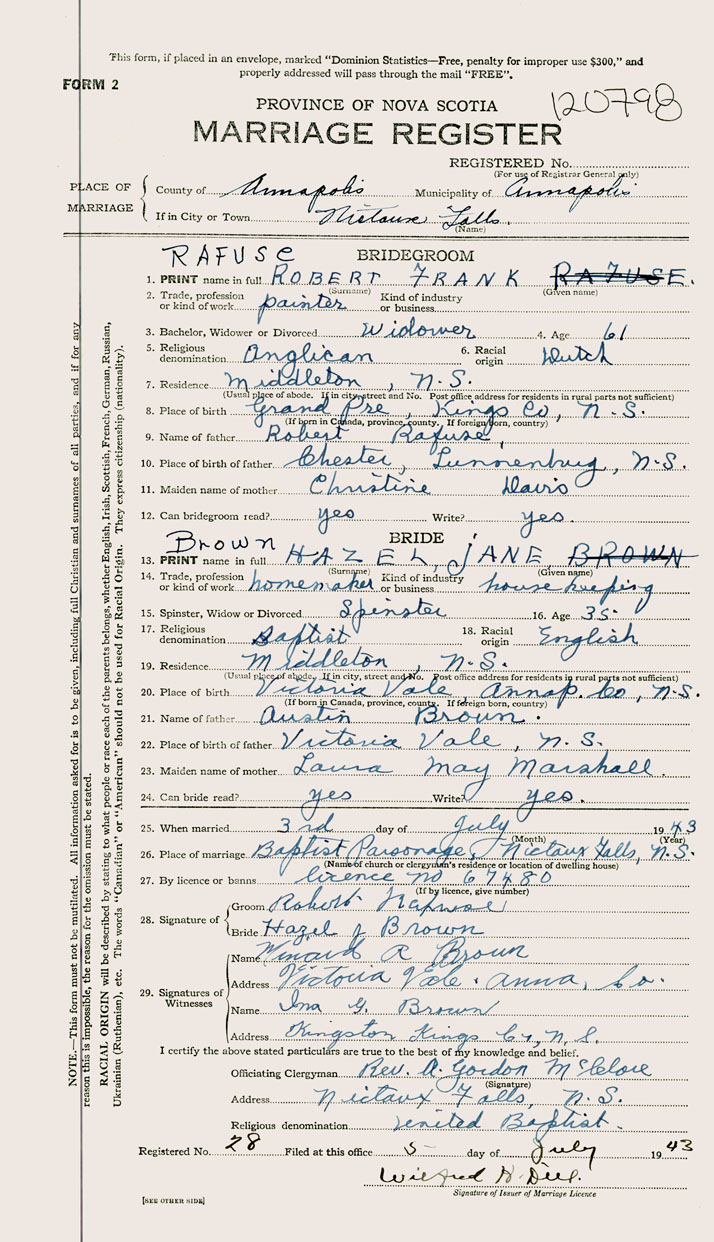 This form, if placed in an envelope, marked "Dominion Statistics—Free, penalty for improper use $300," and
properly addressed will pass through the mail "FREE".
FORM 2
120798
PROVINCE OF NOVA SCOTIA
MARRIAGE REGISTER
REGISTERED No.
(For use of Registrar General only)
PLACE OF MARRIAGE
County of Annapolis Municipality of Annapolis
If in City or Town Nictaux Falls.
(Name)
RAFUSE BRIDEGROOM
1. PRINT name in full ROBERT FRANK RAFUSE.
(Surname) (Given name)
2. Trade, profession or kind of work painter Kind of industry or business
3. Bachelor, Widower or Divorced Widower 4. Age 61
5. Religious denomination Anglican 6. Racial origin Dutch
7. Residence Middleton, N.S.
(Usual place of abode. If in city, street and No. Post office address for residents in rural parts not sufficient)
8. Place of birth Grand Pre, Kings Co, N.S.
(If born in Canada, province, county. If foreign born, country)
9. Name of father Robert Rafuse,
10. Place of birth of father Chester, Lunnenburg, N.S.
11. Maiden name of mother Christine Davis
12. Can bridegroom read? yes Write? yes.
Brown BRIDE
13. PRINT name in full HAZEL, JANE BROWN
(Surname) (Given name)
14. Trade, profession or kind of work homemaker Kind of industry or business housekeeping
15. Spinster, Widow or Divorced Spinster 16. Age 35
17. Religious denomination Baptist 18. Racial origin English
19. Residence Middleton, N.S.
(Usual place of abode. If in city, street and No. Post office address for residents in rural parts not sufficient)
20. Place of birth Victoria Vale, Annap. Co, N.S.
(If born in Canada, province, county. If foreign born, country)
21. Name of father Austin Brown.
22. Place of birth of father Victoria Vale, N.S.
23. Maiden name of mother Laura May Marshall.
24. Can bride read? yes Write? yes.
25. When married 3rd day of July 1943
(Month) (Year)
26. Place of marriage Baptist Parsonage, Nictaux Falls, N.S.
(Name of church or clergyman's residence or location of dwelling house)
27. By licence or banns licence no 67480
(If by licence, give number)
28. Signature of
Groom Robert Rafuse
Bride Hazel J Brown
29. Signatures of Witnesses
Name R Brown
Address Victoria Vale. Anna, Co.
Name Ina G. Brown
Address Kingston Kings Co, N.S.
I certify the above stated particulars are true to the best of my knowledge and belief.
Officiating Clergyman Rev. A. Gordon
(Signature)
Address Nictaux Falls, N.S.
Religious denomination United Baptist.
Registered No. 28 Filed at this office 5 day of July 1943
Wilfred
Signature of Issuer of Marriage Licence
[SEE OTHER SIDE]
NOTE.—This form must not be mutilated. All information asked for is to be given, including full Christian and surnames of all parties, and if for any
reason this is impossible, the reason for the omission must be stated.
RACIAL ORIGIN will be described by stating to what people or race each of the parents belongs, whether English, Irish, Scottish, French, German, Russian,
Ukrainian (Ruthenian), etc. The words "Canadian" or "American" should not be used for Racial Origin. They express citizenship (nationality).